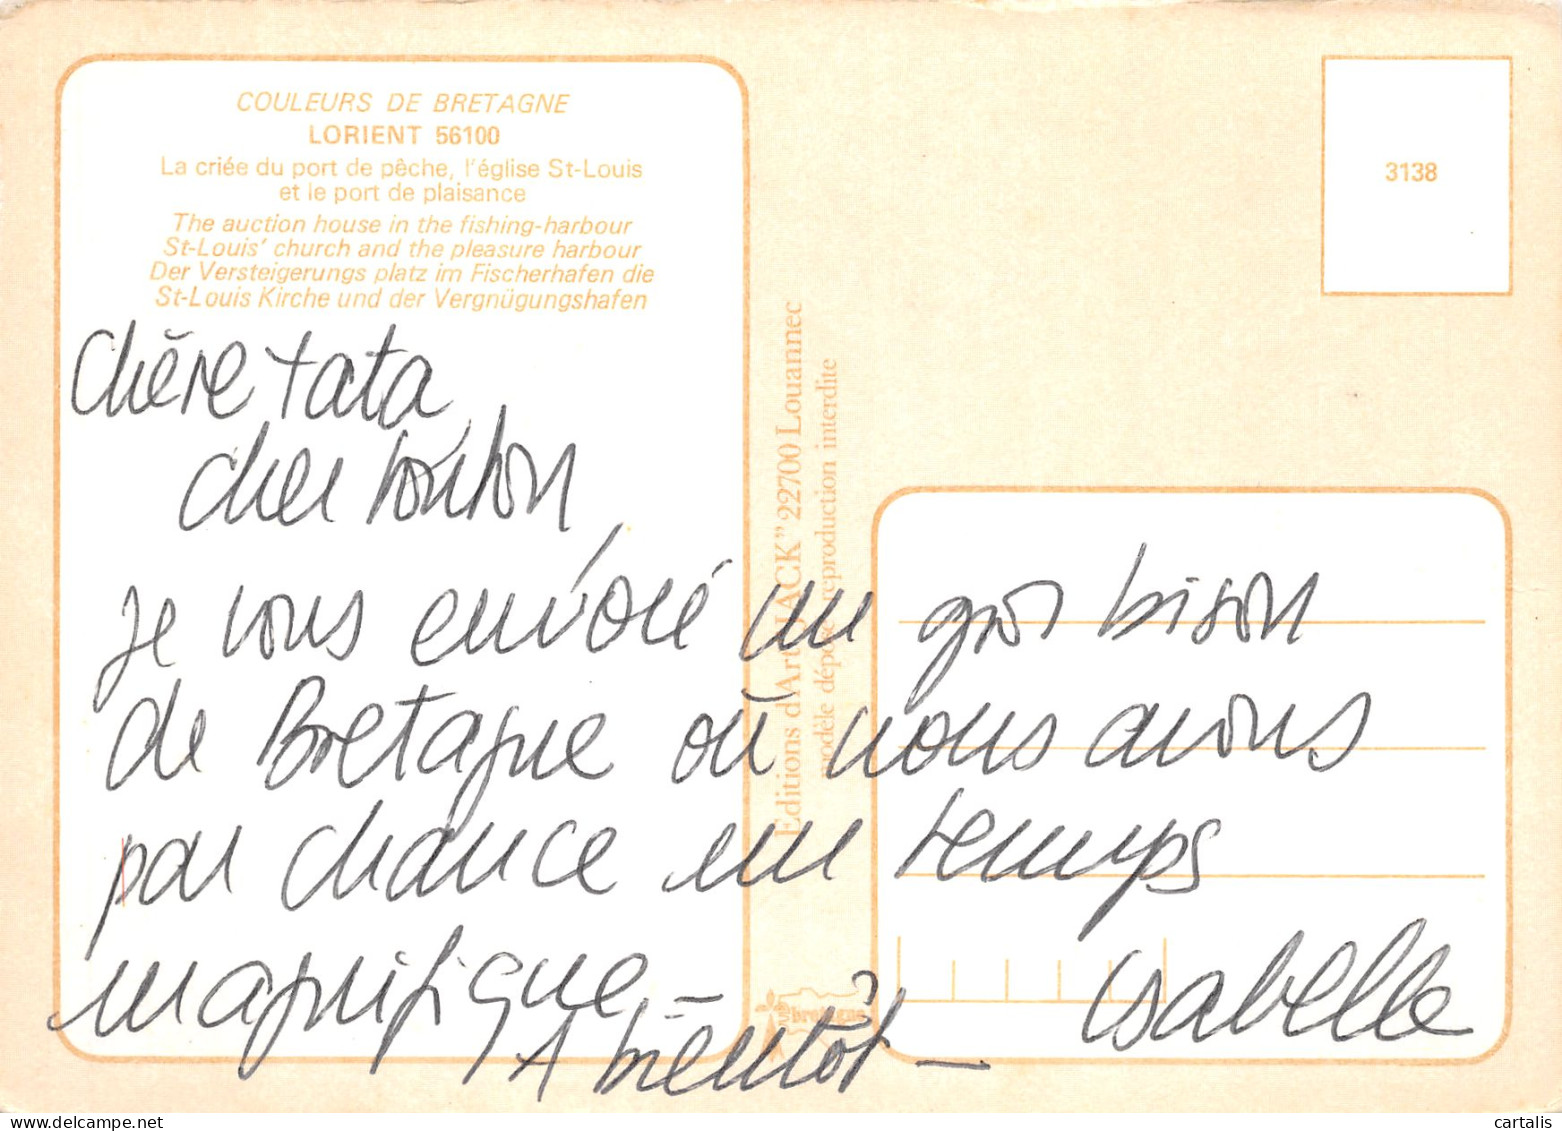 COULEURS DE BRETAGNE
LORIENT 56100
La criée du port de pêche, l'église St-Louis
et le port de plaisance
The auction house in the fishing-harbour
St-Louis' church and the pleasure harbour
Der Versteigerungs platz im Fischerhafen die
St-Louis Kirche und der Vergnügungshafen
3138
Editions d'Art "JACK" 22700 Louannec
modèle déposé reproduction interdite
Chère tata
cher tonton
je vous envoie un gros bison
de Bretagne où nous avons
par chance un temps
magnifique –
A bientôt –
Isabelle
bretagne
delcampe.net
cartalis